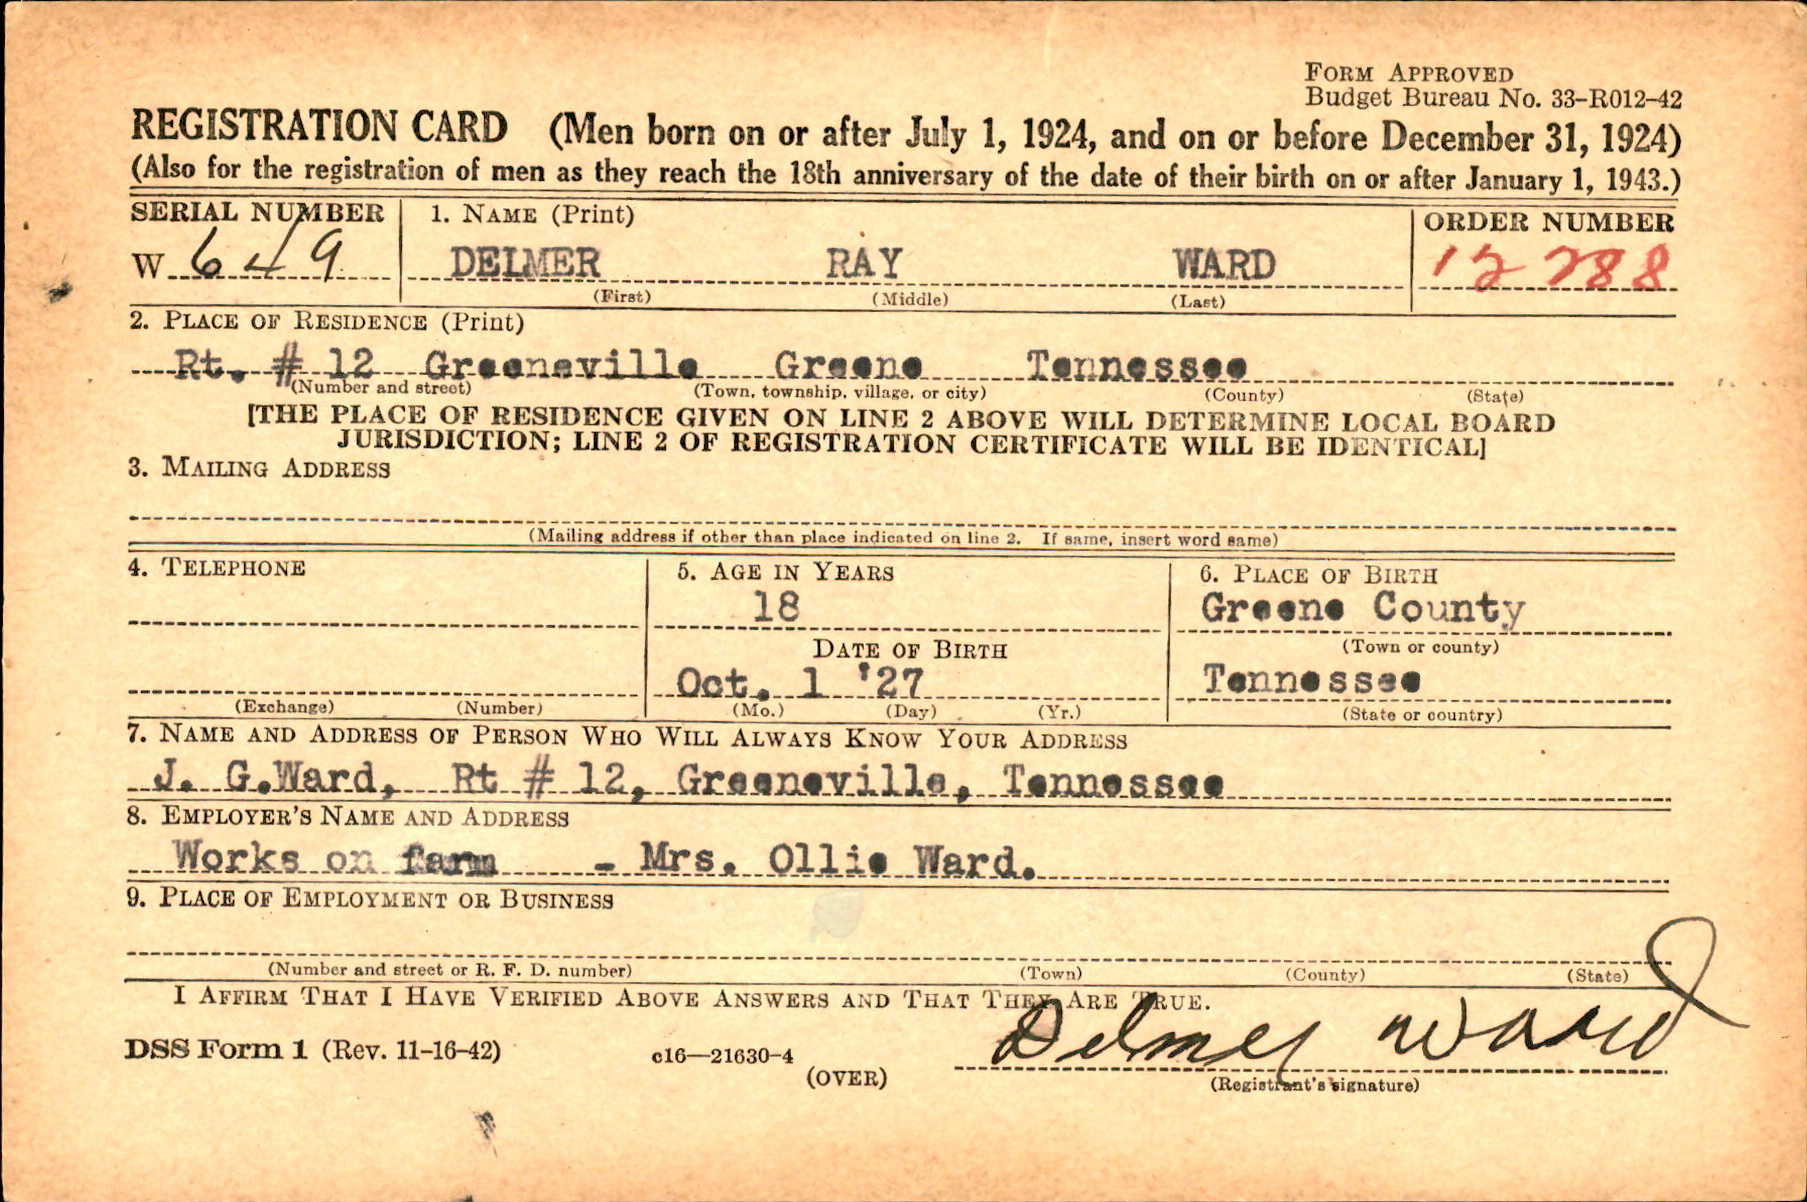 FORM APPROVED
Budget Bureau No. 33-R012-42
REGISTRATION CARD (Men born on or after July 1, 1924, and on or before December 31, 1924)
(Also for the registration of men as they reach the 18th anniversary of the date of their birth on or after January 1, 1943.)
SERIAL NUMBER 1. NAME (Print) ORDER NUMBER
W 649 DELMER RAY WARD 12288
(First) (Middle) (Last)
2. PLACE OF RESIDENCE (Print)
Rt. # 12 Greeneville Greene Tennessee
(Number and street) (Town, township, village, or city) (County) (State)
[THE PLACE OF RESIDENCE GIVEN ON LINE 2 ABOVE WILL DETERMINE LOCAL BOARD
JURISDICTION; LINE 2 OF REGISTRATION CERTIFICATE WILL BE IDENTICAL]
3. MAILING ADDRESS
(Mailing address if other than place indicated on line 2. If same, insert word same)
4. TELEPHONE 5. AGE IN YEARS 6. PLACE OF BIRTH
18 Greene County
DATE OF BIRTH (Town or county)
Oct. 1 '27 Tennessee
(Exchange) (Number) (Mo.) (Day) (Yr.) (State or country)
7. NAME AND ADDRESS OF PERSON WHO WILL ALWAYS KNOW YOUR ADDRESS
J. G.Ward, Rt # 12, Greeneville, Tennessee
8. EMPLOYER'S NAME AND ADDRESS
Works on farm - Mrs. Ollie Ward.
9. PLACE OF EMPLOYMENT OR BUSINESS
(Number and street or R. F. D. number) (Town) (County) (State)
I AFFIRM THAT I HAVE VERIFIED ABOVE ANSWERS AND THAT THEY ARE TRUE.
Delmer Ward
DSS Form 1 (Rev. 11-16-42) c16—21630-4
(OVER) (Registrant's signature)